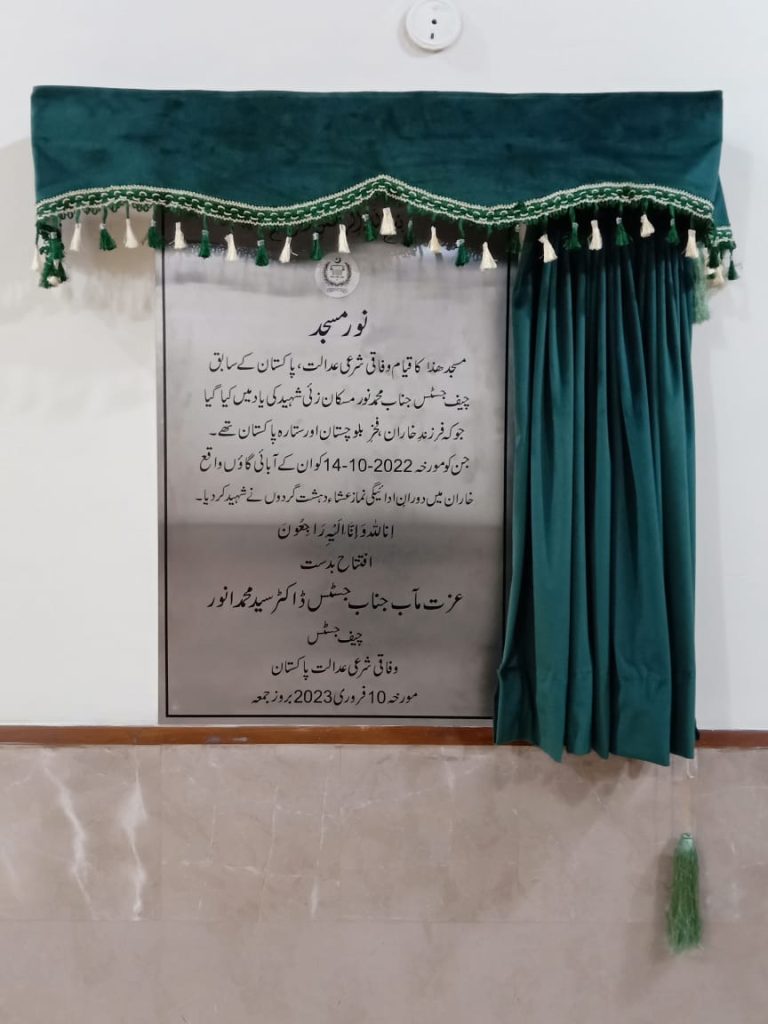 نور مسجد
مسجد ھذا کا قیام وفاقی شرعی عدالت، پاکستان کے سابق
چیف جسٹس جناب محمد نور مسکان زئی شہید کی یاد میں کیا گیا
جو کہ فرزندِ خاران، فخرِ بلوچستان اور ستارہ پاکستان تھے۔
جن کو مورخہ 2022-10-14 کو ان کے آبائی گاؤں واقع
خاران میں دورانِ ادائیگی نماز عشاء دہشت گردوں نے شہید کر دیا۔
اِنَا للّٰہ وَاِنَّا اِلَیْہِ رَاجِعُونَ
افتتاح بدست
عزت مآب جناب جسٹس ڈاکٹر سید محمد انور
چیف جسٹس
وفاقی شرعی عدالت پاکستان
مورخہ 10 فروری 2023 بروز جمعہ